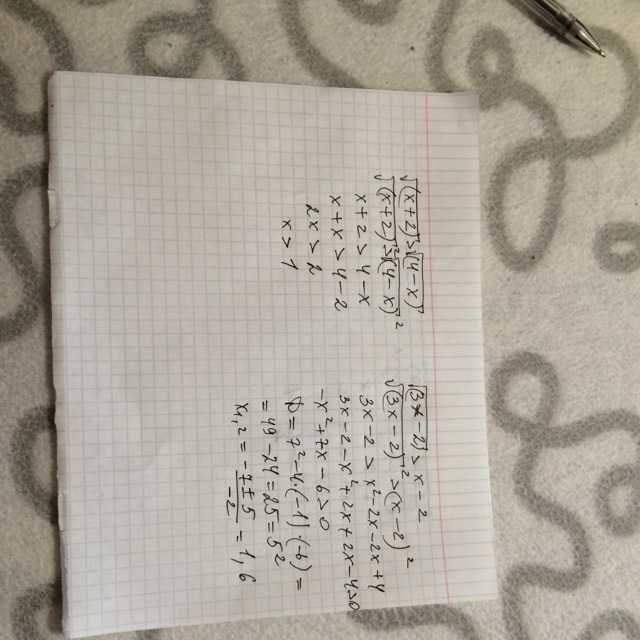 √(x+2) > √(4-x)
√(x+2)² > √(4-x)²
x+2 > 4-x
x+x > 4-2
2x > 2
x > 1
√3x-2 > x-2
√(3x-2)² > (x-2)²
3x-2 > x²-2x-2x+4
3x-2-x²+2x+2x-4>0
-x²+7x-6>0
D = 7²-4·(-1)·(-6) =
= 49-24 = 25 = 5²
x₁,₂ = -7±5/-2 = 1,6